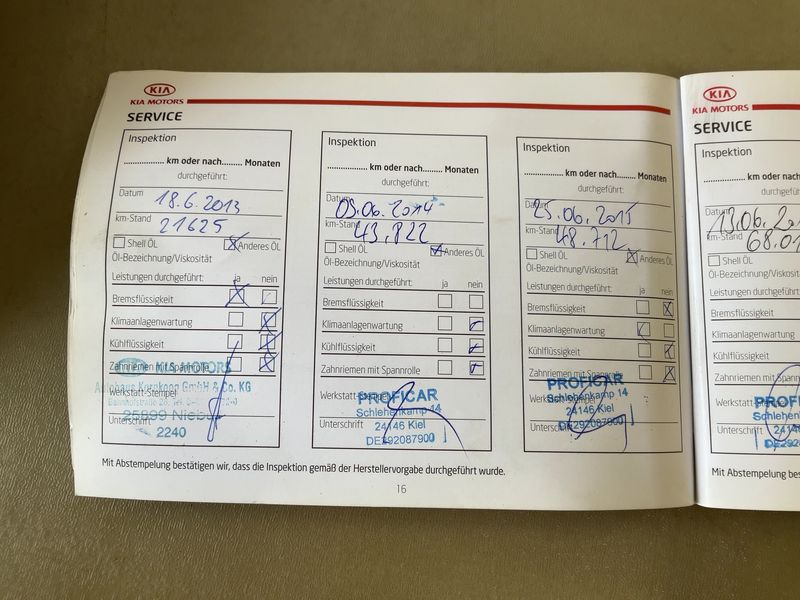 KIA
KIA MOTORS
SERVICE
Inspektion
.................. km oder nach......... Monaten
durchgeführt:
Datum 18.6.2013
km-Stand 21625
Shell ÖL Anderes ÖL
Öl-Bezeichnung/Viskosität
Leistungen durchgeführt: ja nein
Bremsflüssigkeit
Klimaanlagenwartung
Kühlflüssigkeit
Zahnriemen mit Spannrolle
KIA MOTORS
GmbH & Co. KG
Werkstatt-Stempel
25899
Unterschrift
2240
Inspektion
.................. km oder nach......... Monaten
durchgeführt:
Datum 03.06.2014
km-Stand 43.822
Shell ÖL Anderes ÖL
Öl-Bezeichnung/Viskosität
Leistungen durchgeführt: ja nein
Bremsflüssigkeit
Klimaanlagenwartung
Kühlflüssigkeit
Zahnriemen mit Spannrolle
PROFICAR
Schlehenkamp 14
24146 Kiel
Unterschrift
DE292087900
Inspektion
.................. km oder nach......... Monaten
durchgeführt:
Datum 23.06.2015
km-Stand 48.712
Shell ÖL Anderes ÖL
Öl-Bezeichnung/Viskosität
Leistungen durchgeführt: ja nein
Bremsflüssigkeit
Klimaanlagenwartung
Kühlflüssigkeit
Zahnriemen mit Spannrolle
PROFICAR
Schlehenkamp 14
24146 Kiel
DE292087900
Mit Abstempelung bestätigen wir, dass die Inspektion gemäß der Herstellervorgabe durchgeführt wurde.
16
KIA
KIA MOTORS
SERVICE
Inspektion
.................. km oder nach
durchgefüh
Datum 13.06.
km-Stand 68.0
Shell ÖL
Öl-Bezeichnung/Viskosität
Leistungen durchgeführt:
Bremsflüssigkeit
Klimaanlagenwartung
Kühlflüssigkeit
Zahnriemen mit Spann
PROF
Schlehen
2414
DE292
Mit Abstempelung bes